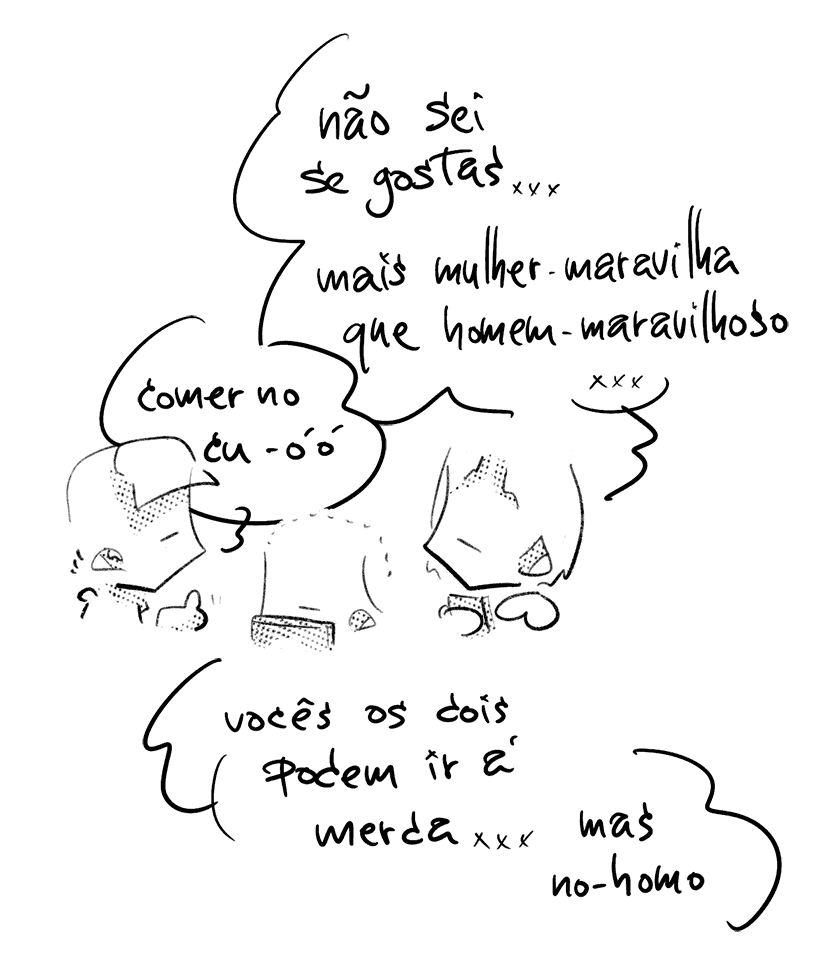 não sei
se gostas xxx
mais mulher-maravilha
que homem-maravilhoso
xxx
comer no
cu-óó
vocês os dois
podem ir á
merda xxx mas
no-homo